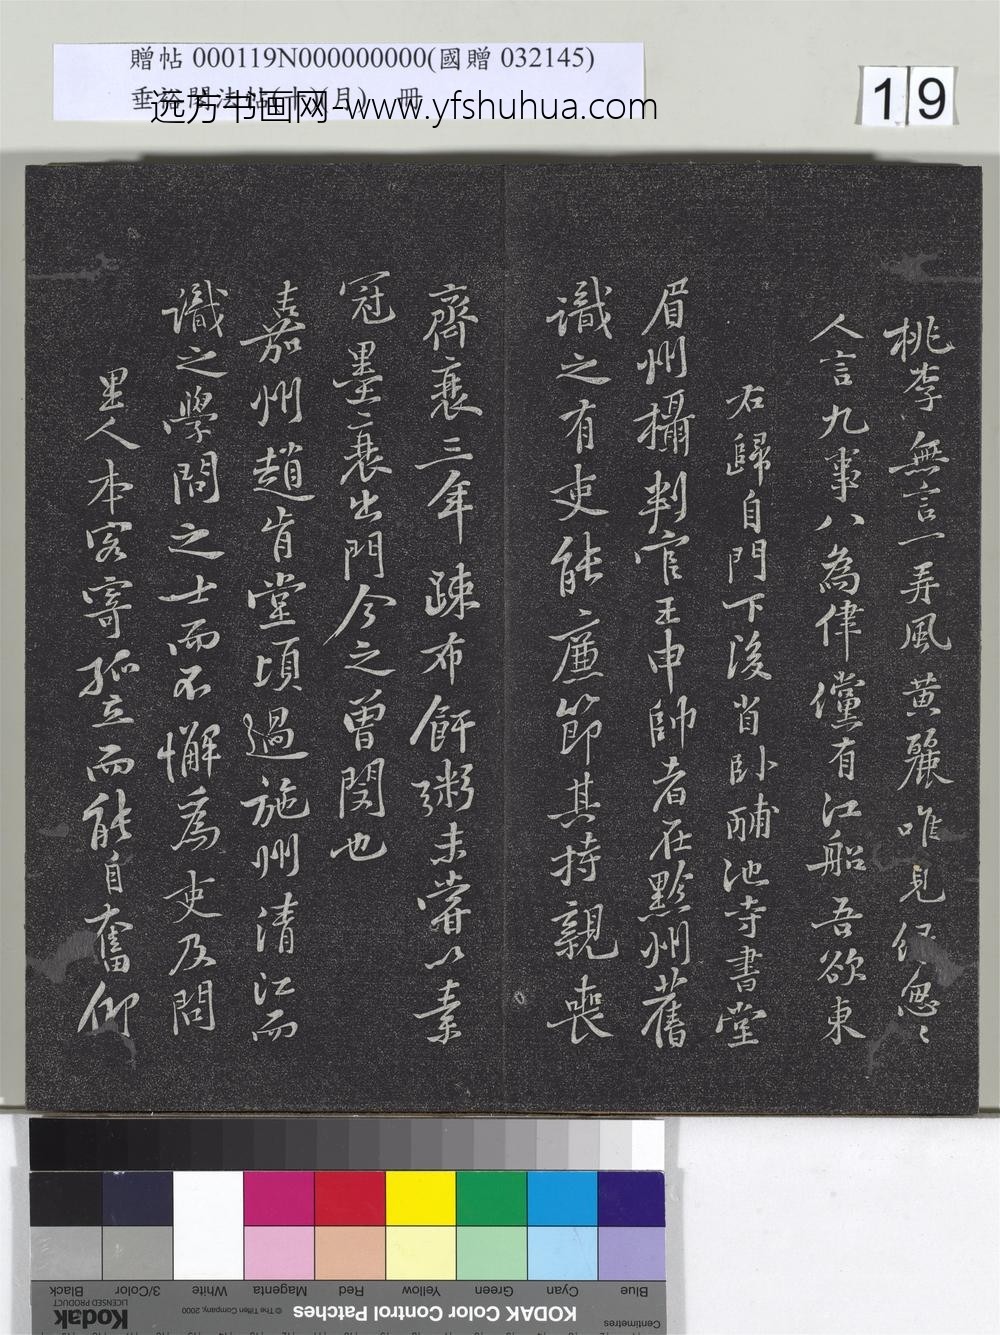 贈帖 000119N000000000(國贈 032145)
远方书画网-www.yfshuhua.com
19
桃李無言一弄風黃麗唯見綠怱〻
人言九事八為律儻有江船吾欲東
右歸自門下後省臥酺池寺書堂
眉州攝判官王申帥者在黔州舊
識之有吏能廉節其持親喪
齊衰三年疎布飦粥未嘗以素
冠墨衰出門今之曾閔也
嘉州趙肯堂頃過施州清江而
識之學問之士而不懈為吏及問
里人本客寄孤立而能自奮仰
Black
3/Color
White
Magenta
Red
Yellow
Green
Cyan
Blue
Kodak
LICENSED PRODUCT
© The Tiffen Company, 2000
KODAK Color Control Patches
Centimetres